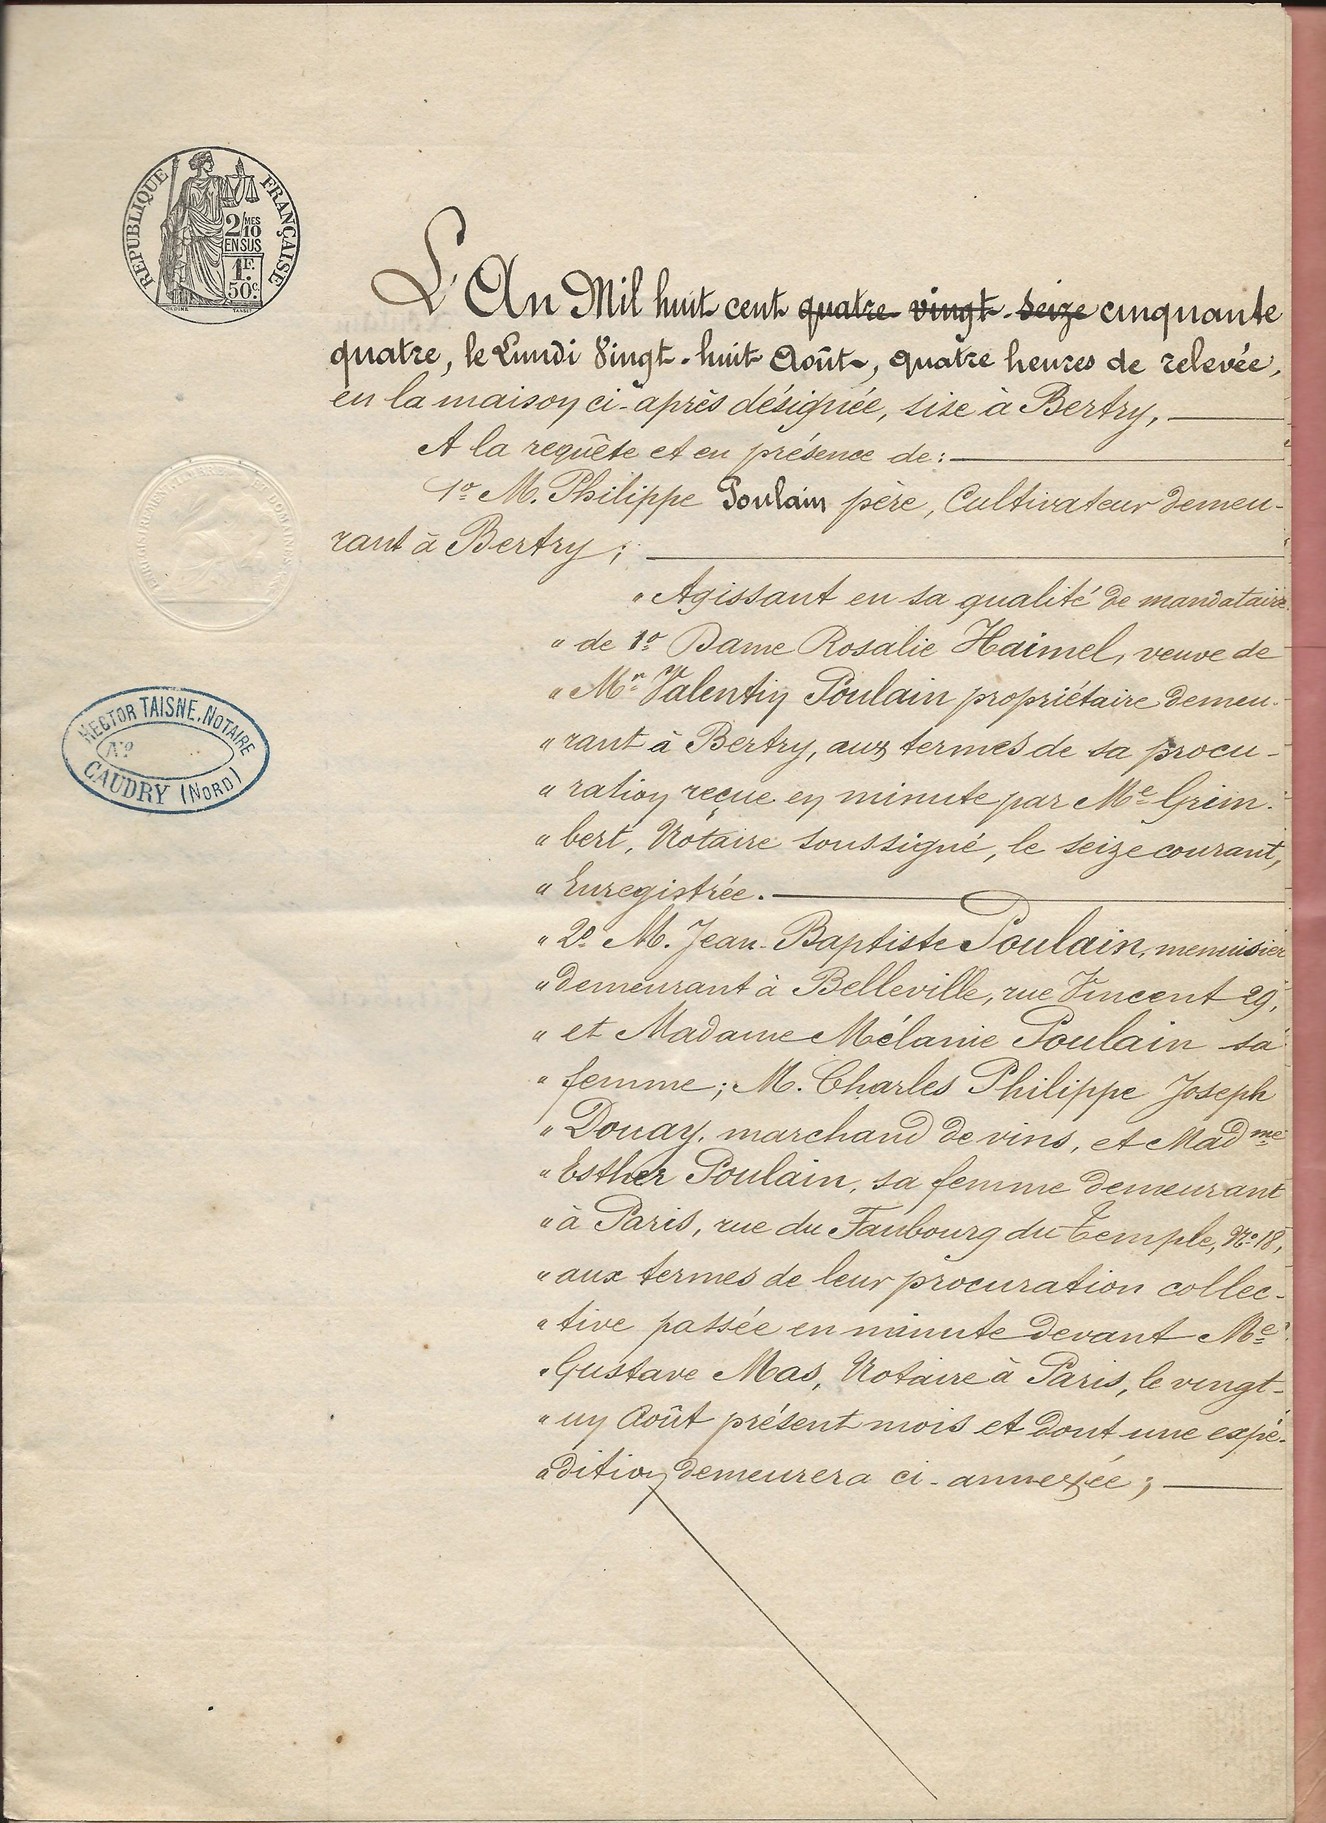 RÉPUBLIQUE FRANÇAISE
2/MES
10
EN SUS
1F.
50c.
L'An Mil huit cent quatre-vingt-seize cinquante
quatre, le Lundi Vingt-huit Août, quatre heures de relevée,
en la maison ci-après désignée, sise à Bertry,
A la requête et en présence de:
1o M. Philippe Poulain père, Cultivateur demeu-
rant à Bertry;
" Agissant en sa qualité de mandataire
" de 1o Dame Rosalie Haimel, veuve de
" Mr Valentin Poulain propriétaire demeu-
" rant à Bertry, aux termes de sa procu-
" ration reçue en minute par Me Grim-
" bert, Notaire soussigné, le seize courant,
" Enregistrée.
" 2o M. Jean-Baptiste Poulain, menuisier
" demeurant à Belleville, rue Vincent 29,
" et Madame Mélanie Poulain sa
" femme; M. Charles Philippe Joseph
" Douay, marchand de vins, et Madme
" Esther Poulain, sa femme demeurant
" à Paris, rue du Faubourg du Temple, No 18,
" aux termes de leur procuration collec-
" tive passée en minute devant Me
" Gustave Mas, Notaire à Paris, le vingt-
" un Août présent mois et dont une expé-
" dition demeurera ci-annexée;
HECTOR TAISNE, NOTAIRE
No
CAUDRY (NORD)